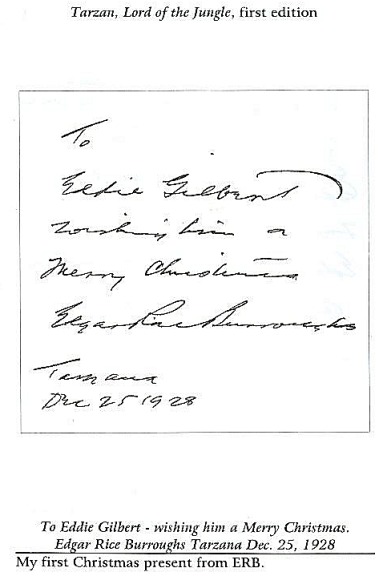 Tarzan, Lord of the Jungle, first edition
To
Eddie Gilbert
wishing him a
Merry Christmas
Edgar Rice Burroughs
Tarzana
Dec 25 1928
To Eddie Gilbert - wishing him a Merry Christmas.
Edgar Rice Burroughs Tarzana Dec. 25, 1928
My first Christmas present from ERB.